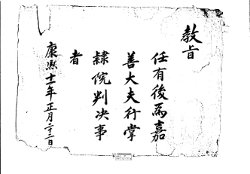 教旨
任有後爲嘉
善大夫行掌
隷院判決事
者
康熙十一年正月二十二日